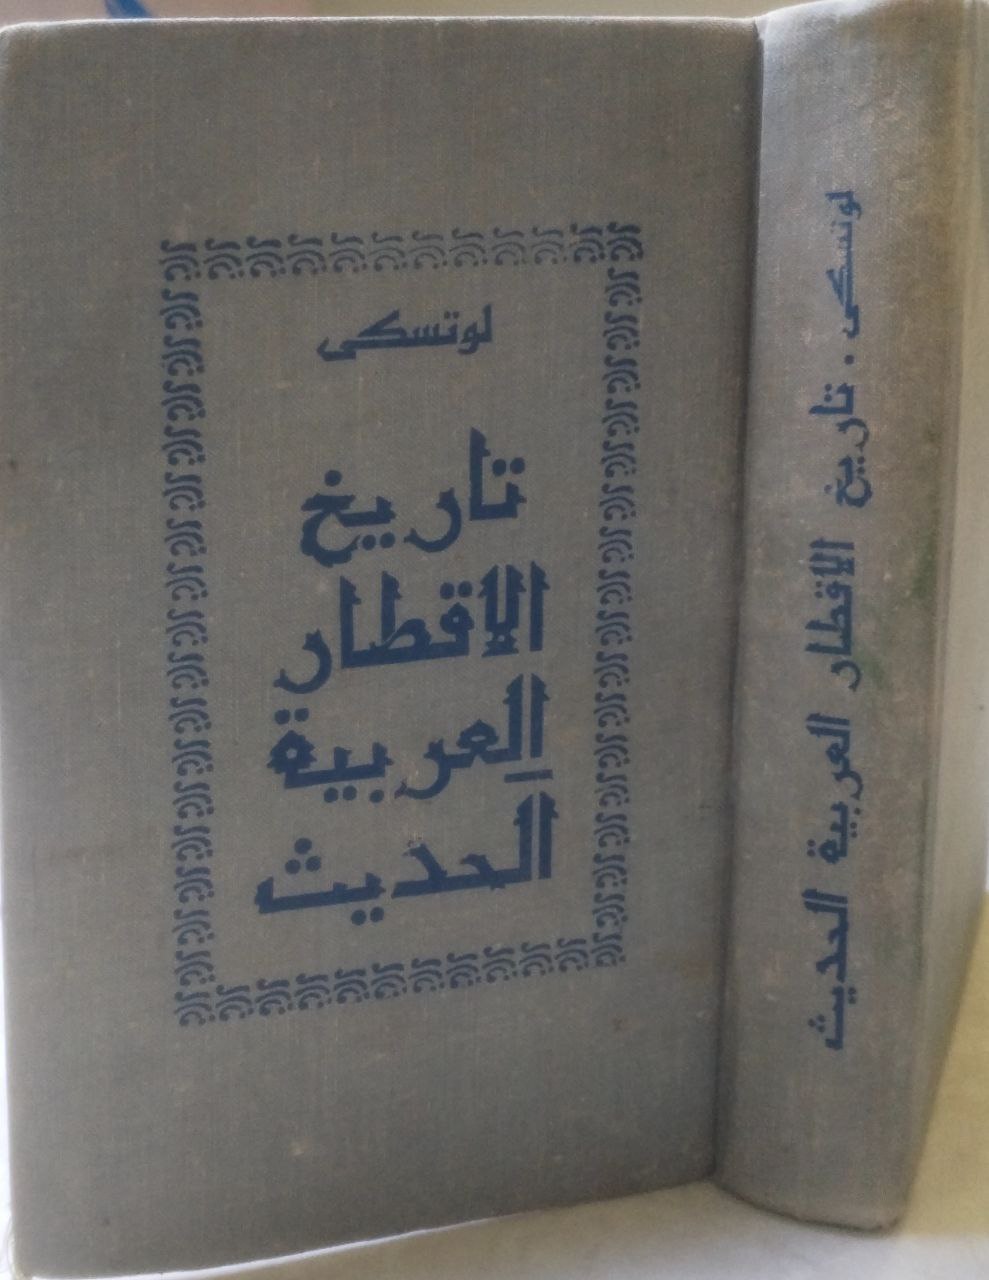 لوتسكى
تاريخ
الاقطار
العربية
الحديث
لوتسكى . تاريخ الاقطار العربية الحديث